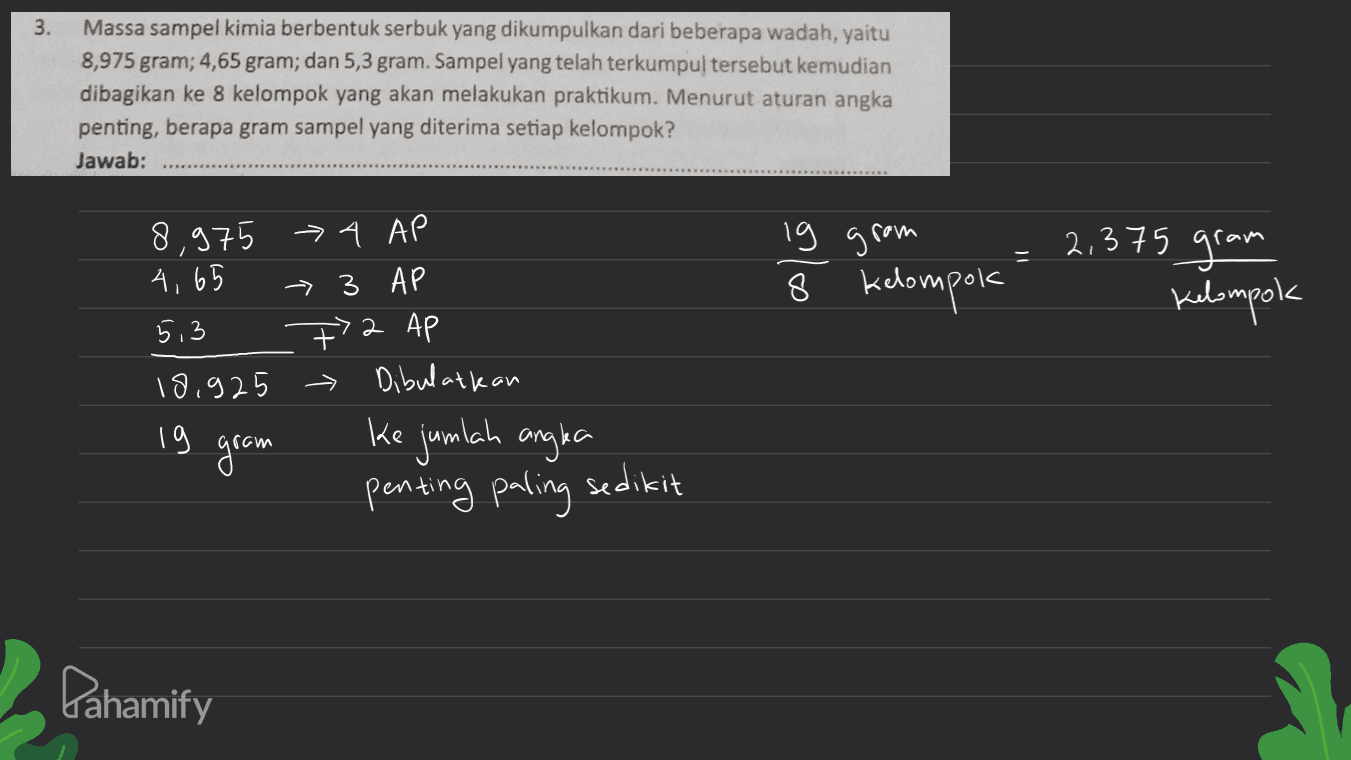 3. Massa sampel kimia berbentuk serbuk yang dikumpulkan dari beberapa wadah, yaitu
8,975 gram; 4,65 gram; dan 5,3 gram. Sampel yang telah terkumpul tersebut kemudian
dibagikan ke 8 kelompok yang akan melakukan praktikum. Menurut aturan angka
penting, berapa gram sampel yang diterima setiap kelompok?
Jawab: ................................................................
8,975 → 4 AP
4,65 → 3 AP
5,3 → 2 AP
+
18,925 → Dibulatkan
19 gram ke jumlah angka
penting paling sedikit
19 gram = 2,375 gram
8 kelompok kelompok
Pahamify